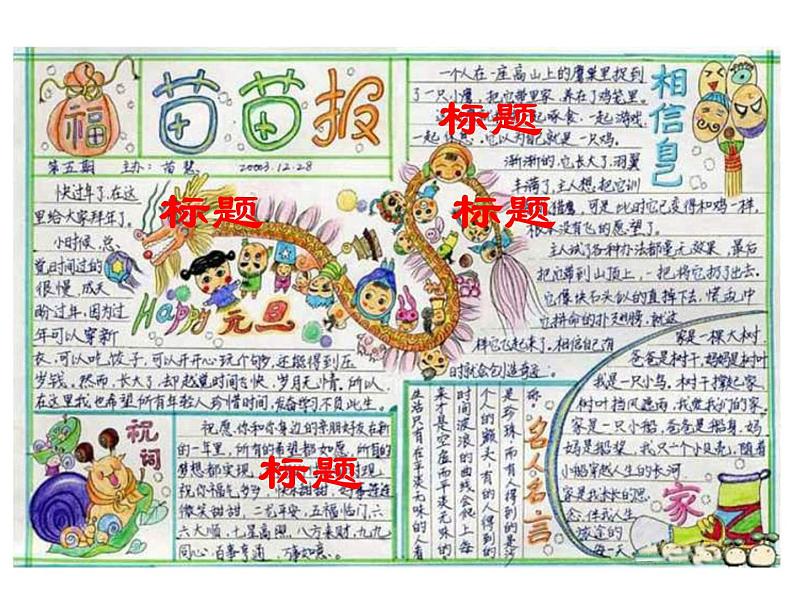 福
苗苗报
第五期 主办:苗慧 20003.12.28
快过年了,在这
里给大家拜年了。
小时候,总
觉时间过的
很慢,成天
盼过年,因为过
年可以穿新
衣,可以吃饺子,可以开开心玩个够,还能得到压
岁钱。然而,长大了,却越觉时间飞快,岁月无情。所以
在这里我也希望所有年轻人珍惜时间,发奋学习不负此生。
标题
Happy 元旦
一个人在一座高山上的鹰巢里捉到
了一只小鹰,把它带回家,养在了鸡笼里。
标题
啄食,一起游戏
一起休息,它以为自己就是一只鸡。
渐渐的,它长大了,羽翼
丰满了,主人想,把它训
标题
猎鹰,可是此时它已变得和鸡一样,
根本没有飞的愿望了。
主人试了各种办法都毫无效果,最后
把它带到山顶上,一把将它扔了出去。
它像快石头似的直掉下去,慌乱中
它拼命的扑打翅膀,就这
样它飞起来了,相信自己有
时就会创造奇迹。
相信自己
祝词
祝愿你和你身边的亲朋好友在新
的一年里,所有的希望都如愿,所有的
梦想都实现,
标题
祝你福气多多,快乐甜甜,好事连连
微笑甜甜,二龙平安,五福临门,六
六大顺,七星高照,八方来财,九九
同心,百事亨通,万事如意。
名人名言
是珍珠,而有人得到的是沙
个人的额头,有的人得到的
时间波浪的曲线会爬上每
来才是空虚而平淡无味的
生活只有在平淡无味的人看
家是一棵大树,
爸爸是树干,妈妈是树叶
我是一只小鸟。树干撑起家
树叶挡风遮雨,我爱我们的家。
家是一只小船,爸爸是船身,妈
妈是船桨,我只一个小贝壳,随着
小船穿越人生的长河
家是我永长的思
念,伴我人生
旅途的
每一天
家